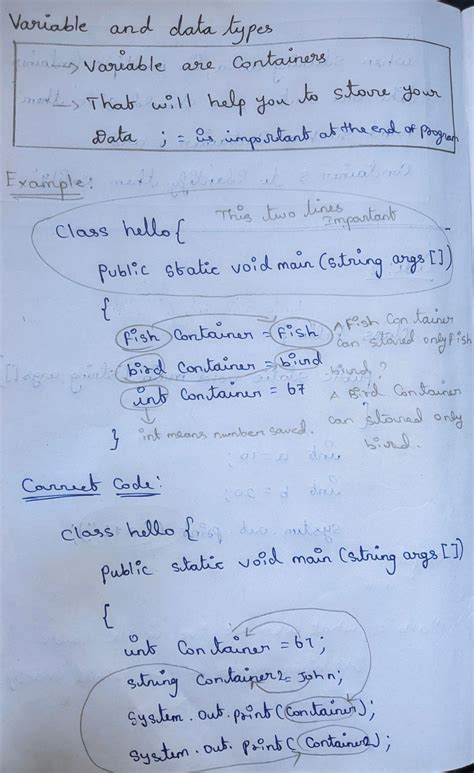 Variable and data types
→ Variable are Containers
→ That will help you to store your
Data ; = is important at the end of program
Example:
This two lines
Important
Class hello {
Public static void main (string args [])
{
fish Container = fish
A Fish Container
can stored only fish
bird Container = bird
bird?
int Container = 67
A Bird Container
can stored only
bird.
int means number saved.
}
Correct Code:
class hello {
Public static void main (string args [])
{
int Container = 67;
string Container2 = John;
System.out.print (Container);
System.out.print (Container2);